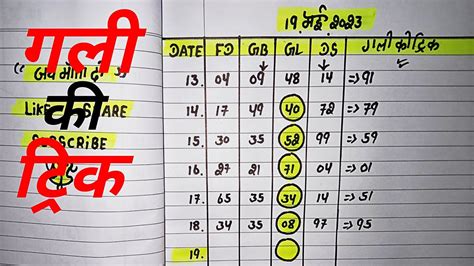 गली
की
ट्रिक
LIKE SHARE
SUBSCRIBE
19 मई 2023
DATE FD GB GL DS गली की ट्रिक
13. 04 09 48 14 ⇒91
14. 17 49 40 72 ⇒79
15. 30 35 58 99 ⇒59
16. 27 21 71 04 ⇒01
17. 65 35 34 14 ⇒51
18. 34 35 08 97 ⇒95
19.